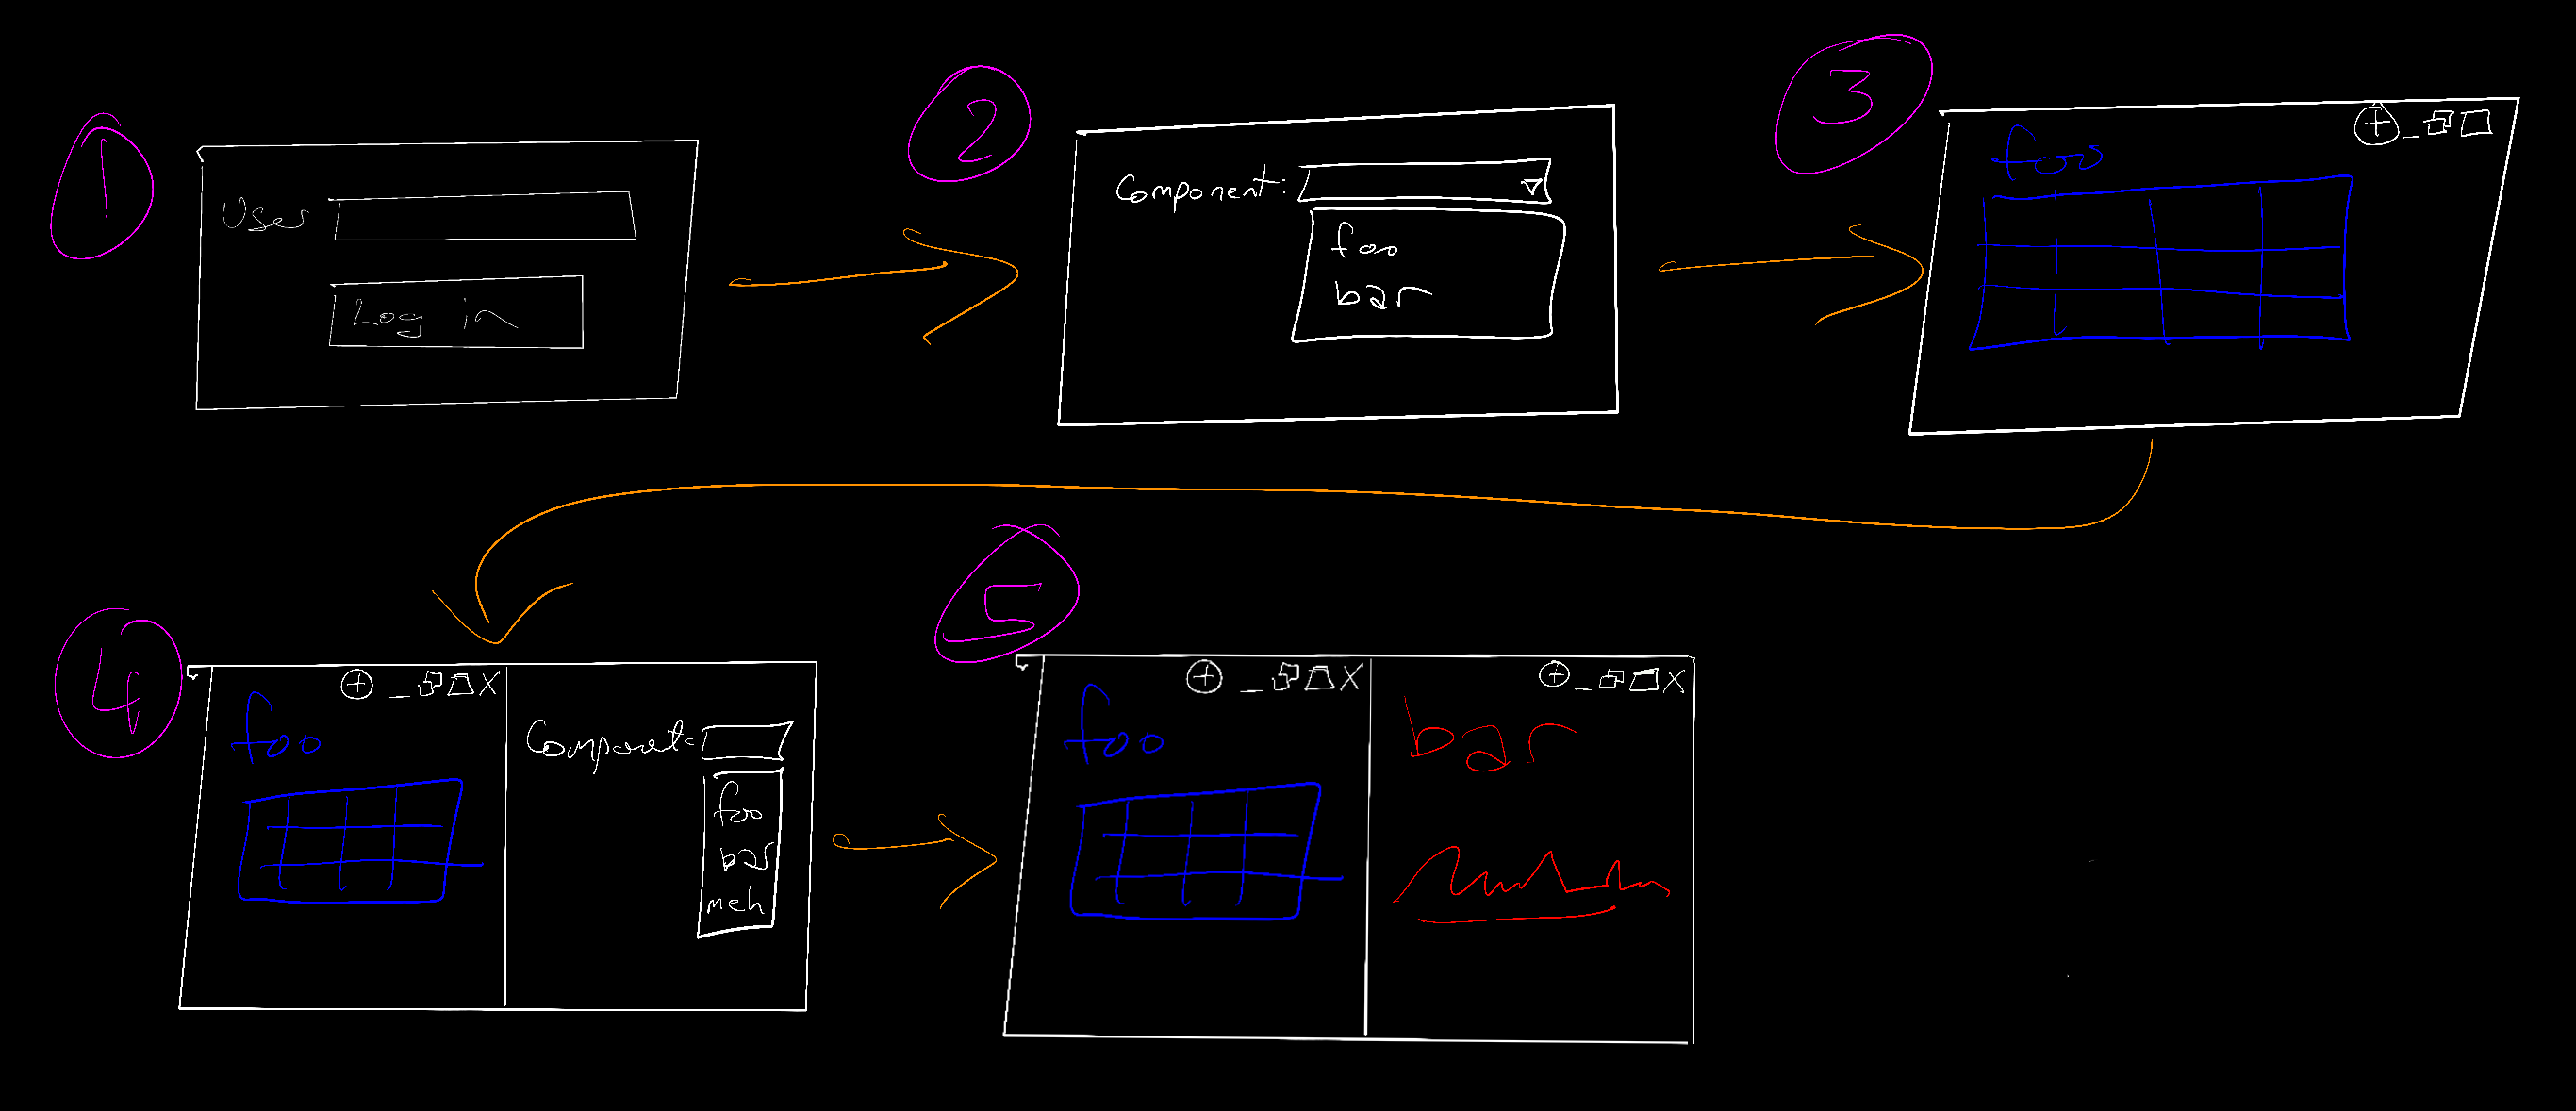 1
User
Log in
2
Component:
foo
bar
3
foo
4
foo
X
Componet:
foo
bar
meh
5
foo
X
bar
X